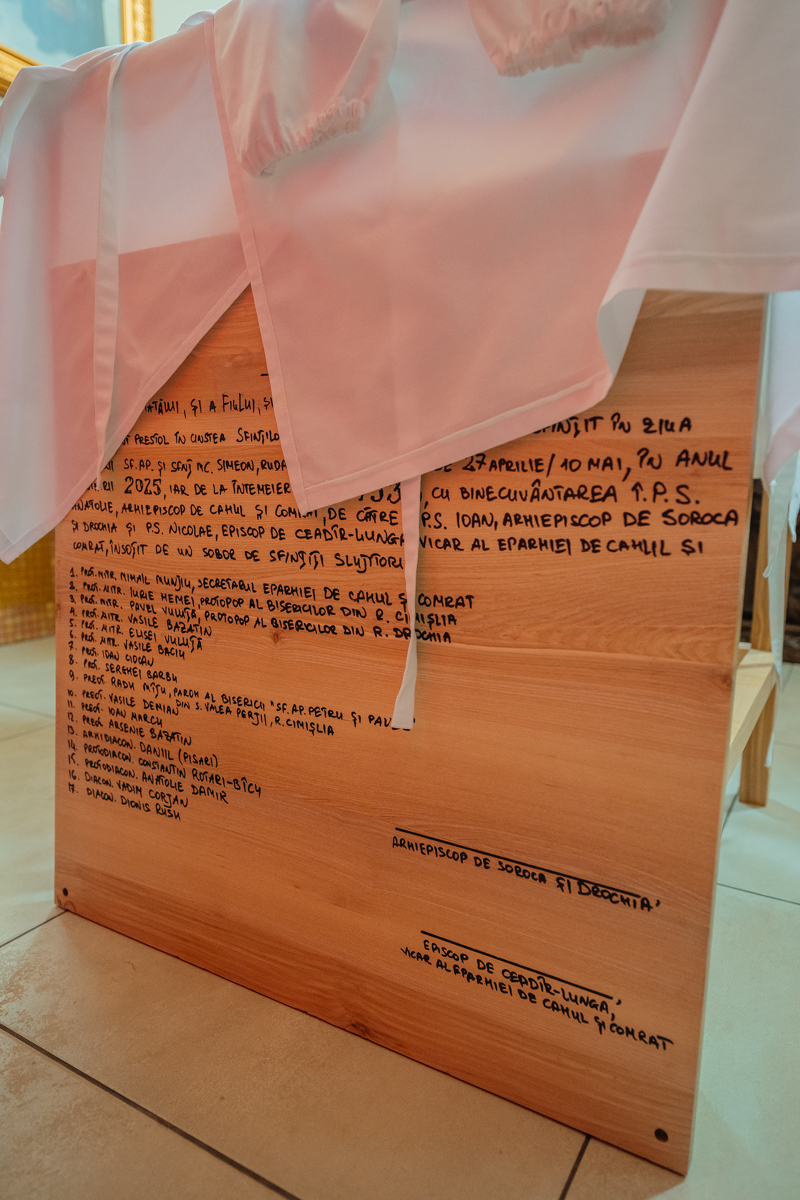 TATĂLUI, ȘI A FIULUI, ȘI
PRESTOL ÎN CINSTEA SFINȚILO SFINȚIT ÎN ZIUA
SF. AP. ȘI SFNȚ MC. SIMEON, RUDA DE 27 APRILIE/10 MAI, ÎN ANUL
2025, IAR DE LA ÎNTEMEIER , CU BINECUVÂNTAREA Î.P.S.
ANATOLIE, ARHIEPISCOP DE CAHUL ȘI COMRAT, DE CĂTRE P.S. IOAN, ARHIEPISCOP DE SOROCA
ȘI DROCHIA ȘI P.S. NICOLAE, EPISCOP DE CEADÎR-LUNGA VICAR AL EPARHIEI DE CAHUL ȘI
COMRAT, ÎNSOȚIT DE UN SOBOR DE SFINȚIȚI SLUJITORI
1. PROT. MITR. MIHAIL MUNJIU, SECRETARUL EPARHIEI DE CAHUL ȘI COMRAT
2. PROT. MITR. IURIE HEMEI, PROTOPOP AL BISERICILOR DIN R. CIMIȘLIA
3. PROT. MITR. PAVEL VULUȚĂ, PROTOPOP AL BISERICILOR DIN R. DROCHIA
4. PROT. MITR. VASILE BAZATIN
5. PROT. MITR. ELISEI VULUȚĂ
6. PROT. MITR. VASILE BACIU
7. PROT. IOAN CIOCAN
8. PROT. SERGHEI BARBU
9. PREOT RADU MÎȚU, PAROH AL BISERICII "SF. AP. PETRU ȘI PAV
DIN S. VALEA PERJII, R. CIMIȘLIA
10. PREOT. VASILE DEMIAN
11. PREOT. IOAN MARCU
12. PREOT. ARSENIE BAZATIN
13. ARHIDIACON. DANIIL (PISARI)
14. PROTODIACON. CONSTANTIN ROTARI-BÎCU
15. PROTODIACON. ANATOLIE DAMIR
16. DIACON. VADIM CORJAN
17. DIACON. DIONIS RUSU
ARHIEPISCOP DE SOROCA ȘI DROCHIA,
EPISCOP DE CEADÎR-LUNGA,
VICAR AL EPARHIEI DE CAHUL ȘI COMRAT